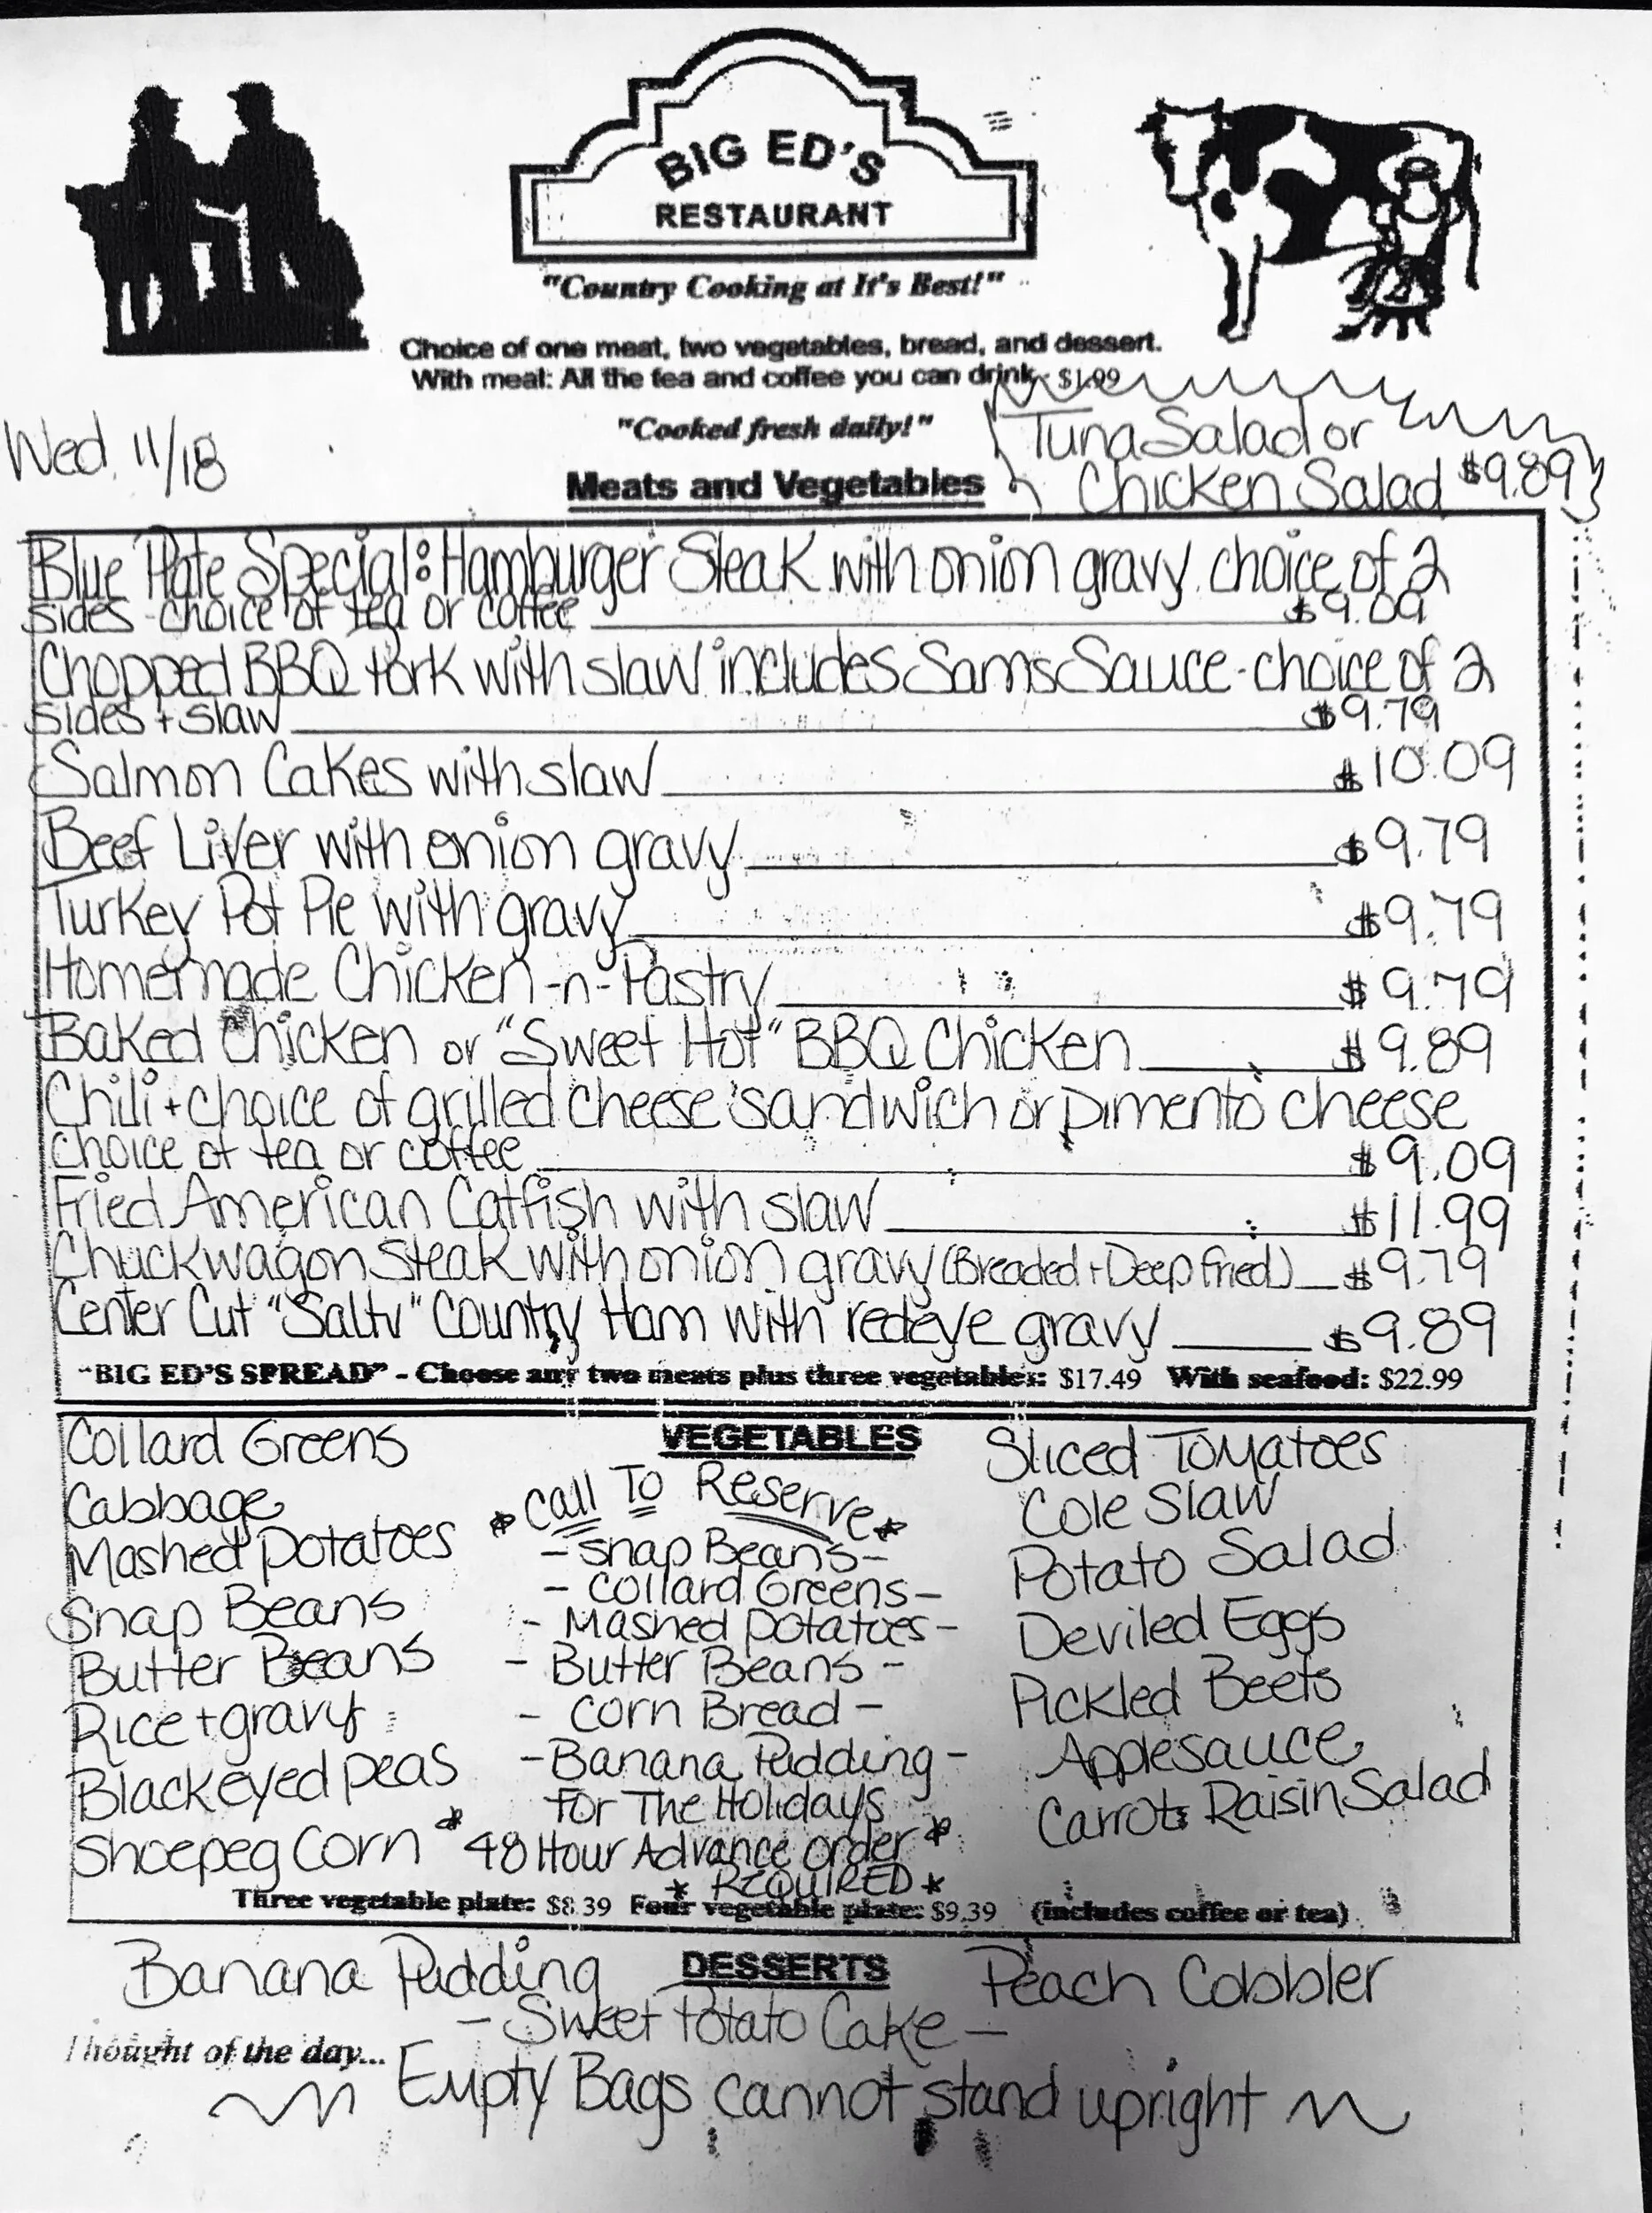 BIG ED'S
RESTAURANT
"Country Cooking at It's Best!"
Choice of one meat, two vegetables, bread, and dessert.
With meal: All the tea and coffee you can drink - $1.99
"Cooked fresh daily!"
Wed. 11/18
Tuna Salad or
Chicken Salad $9.89
Meats and Vegetables
Blue Plate Special: Hamburger Steak with onion gravy choice of 2
sides - choice of tea or coffee $9.09
Chopped BBQ Pork with slaw includes Sams Sauce - choice of 2
sides + slaw $9.79
Salmon Cakes with slaw $10.09
Beef Liver with onion gravy $9.79
Turkey Pot Pie with gravy $9.79
Homemade Chicken -n- Pastry $9.79
Baked Chicken or "Sweet Hot" BBQ Chicken $9.89
Chili + choice of grilled cheese sandwich or pimento cheese
choice of tea or coffee $9.09
Fried American Catfish with slaw $11.99
Chuckwagon Steak with onion gravy (Breaded + Deep fried) $9.79
Center Cut "Salty" Country Ham with redeye gravy $9.89
"BIG ED'S SPREAD" - Choose any two meats plus three vegetables: $17.49 With seafood: $22.99
VEGETABLES
Collard Greens
Cabbage
Mashed Potatoes
Snap Beans
Butter Beans
Rice + gravy
Blackeyed peas
Shoepeg Corn
*Call To Reserve*
- Snap Beans -
- Collard Greens -
- Mashed Potatoes -
- Butter Beans -
- Corn Bread -
- Banana Pudding -
For The Holidays
*48 Hour Advance order*
* REQUIRED *
Sliced Tomatoes
Cole Slaw
Potato Salad
Deviled Eggs
Pickled Beets
Applesauce
Carrot Raisin Salad
Three vegetable plate: $8.39 Four vegetable plate: $9.39 (includes coffee or tea)
DESSERTS
Banana Pudding
Peach Cobbler
- Sweet Potato Cake -
Thought of the day...
Empty Bags cannot stand upright